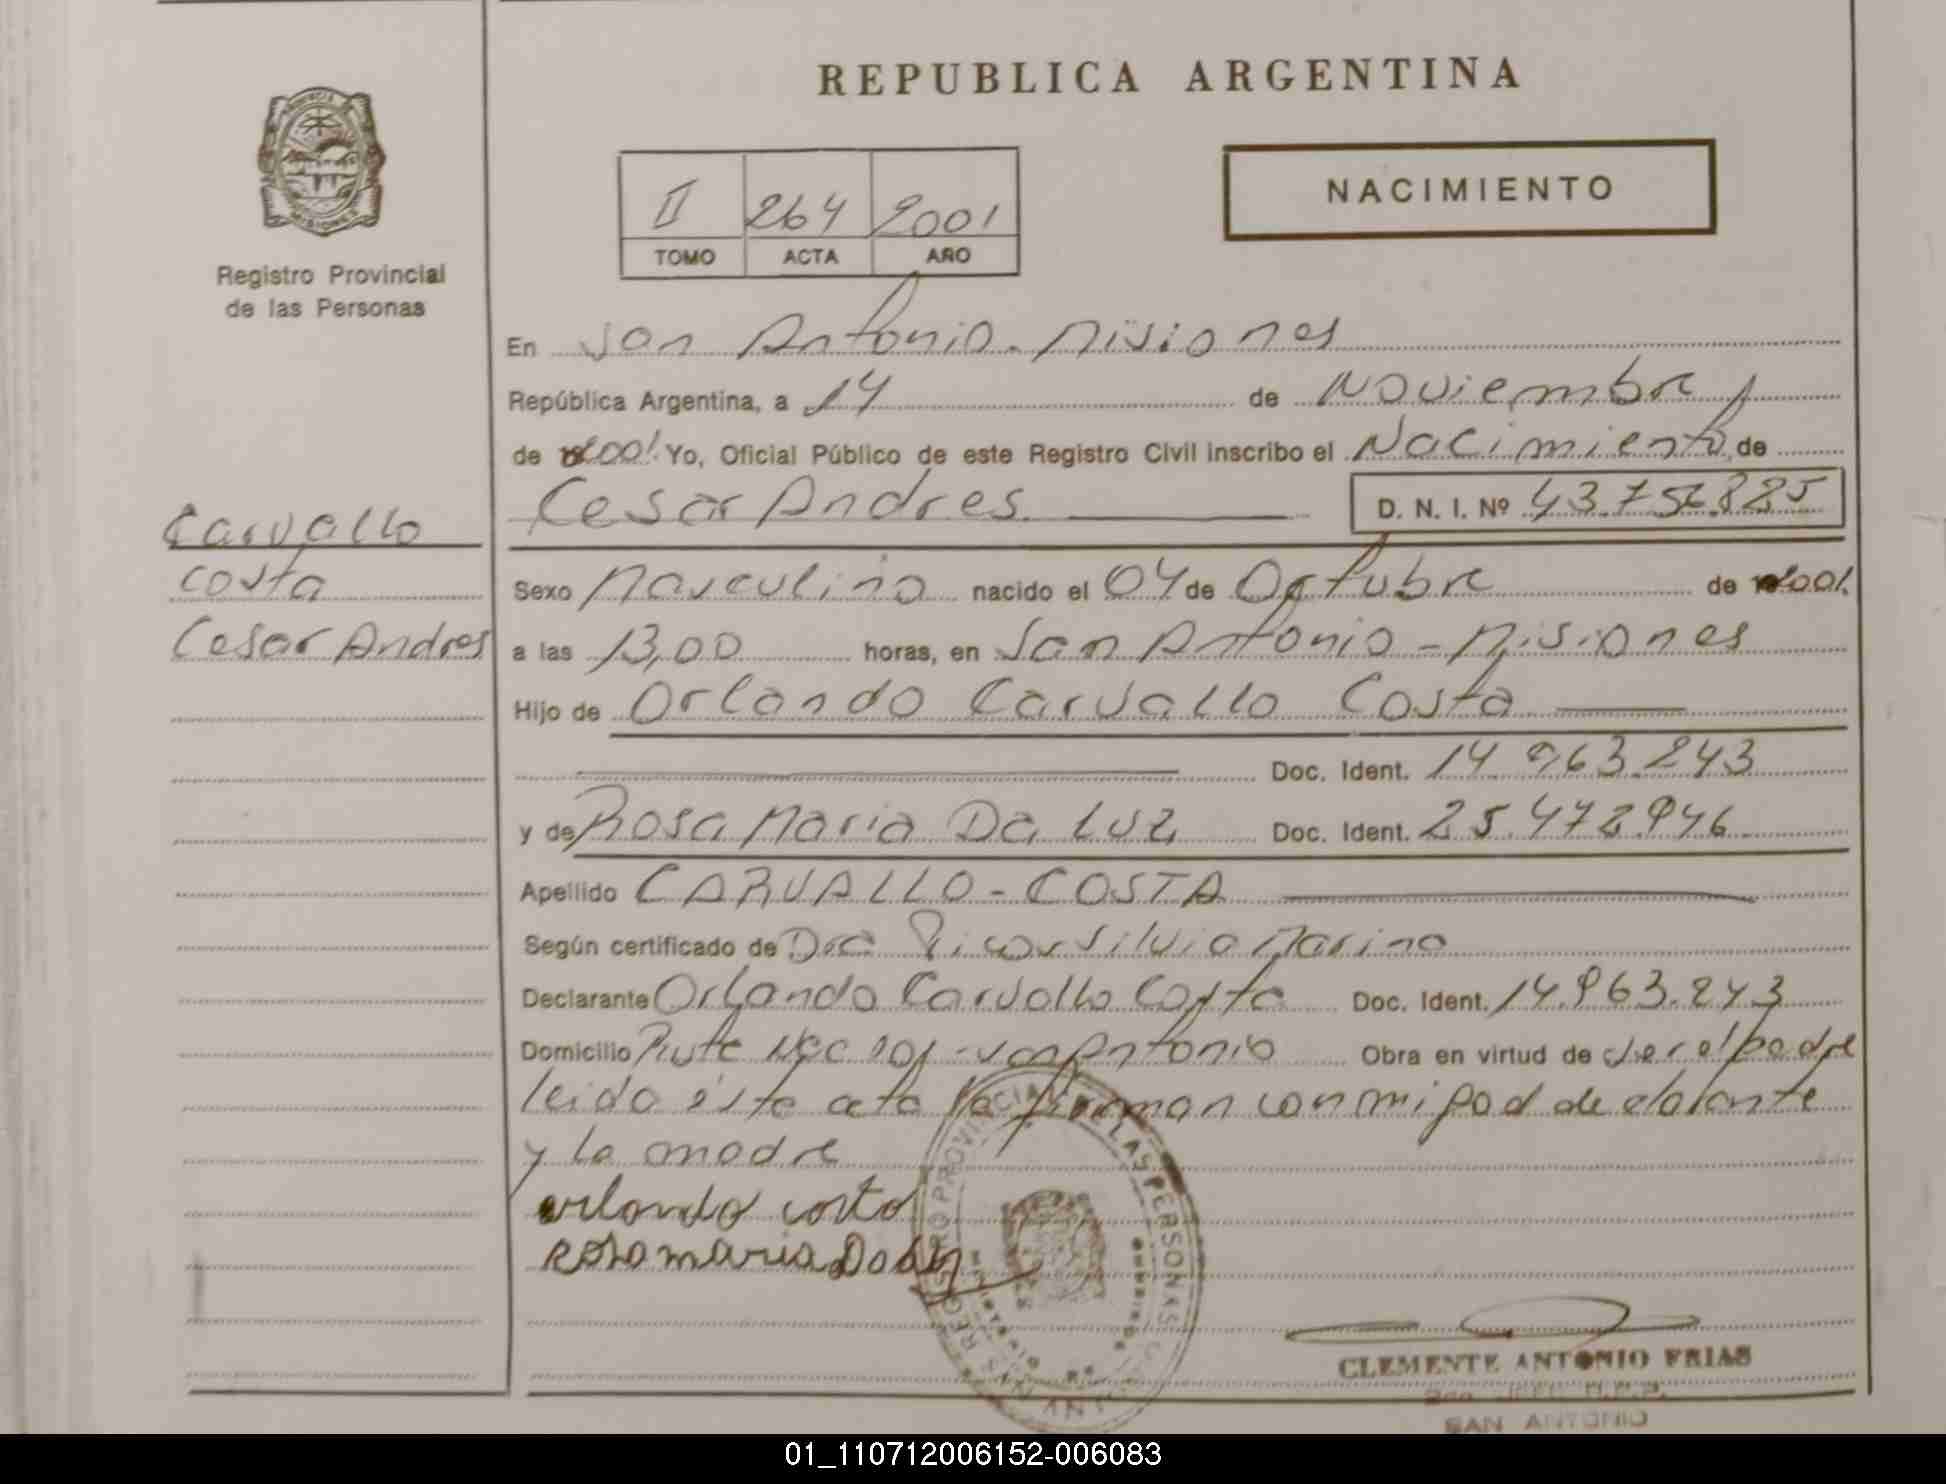 REPUBLICA ARGENTINA
NACIMIENTO
II 264 2001
TOMO ACTA AÑO
Registro Provincial
de las Personas
En San Antonio - Misiones
República Argentina, a 14 de Noviembre
de 2001. Yo, Oficial Público de este Registro Civil inscribo el Nacimiento de
Cesar Andres D. N. I. Nº
Carvallo
Costa
Cesar Andres
Sexo Masculino nacido el 04 de Octubre de 2001.
a las 13,00 horas, en San Antonio - Misiones
Hijo de Orlando Carvallo Costa
Doc. Ident. 14.963.243
y de Rosa Maria Da Luz Doc. Ident. 25.472.946
Apellido CARVALLO - COSTA
Según certificado de Dra Silvia Marina
Declarante Orlando Carvallo Costa Doc. Ident. 14.963.243
Domicilio San Antonio Obra en virtud de ser el padre
leido ésta acta la firman con mi por de
y la madre
orlando costa
Rosa maria Da luz
REGISTRO PROVINCIAL DE LAS PERSONAS
CLEMENTE ANTONIO FRIAS
SAN ANTONIO
01_110712006152-006083